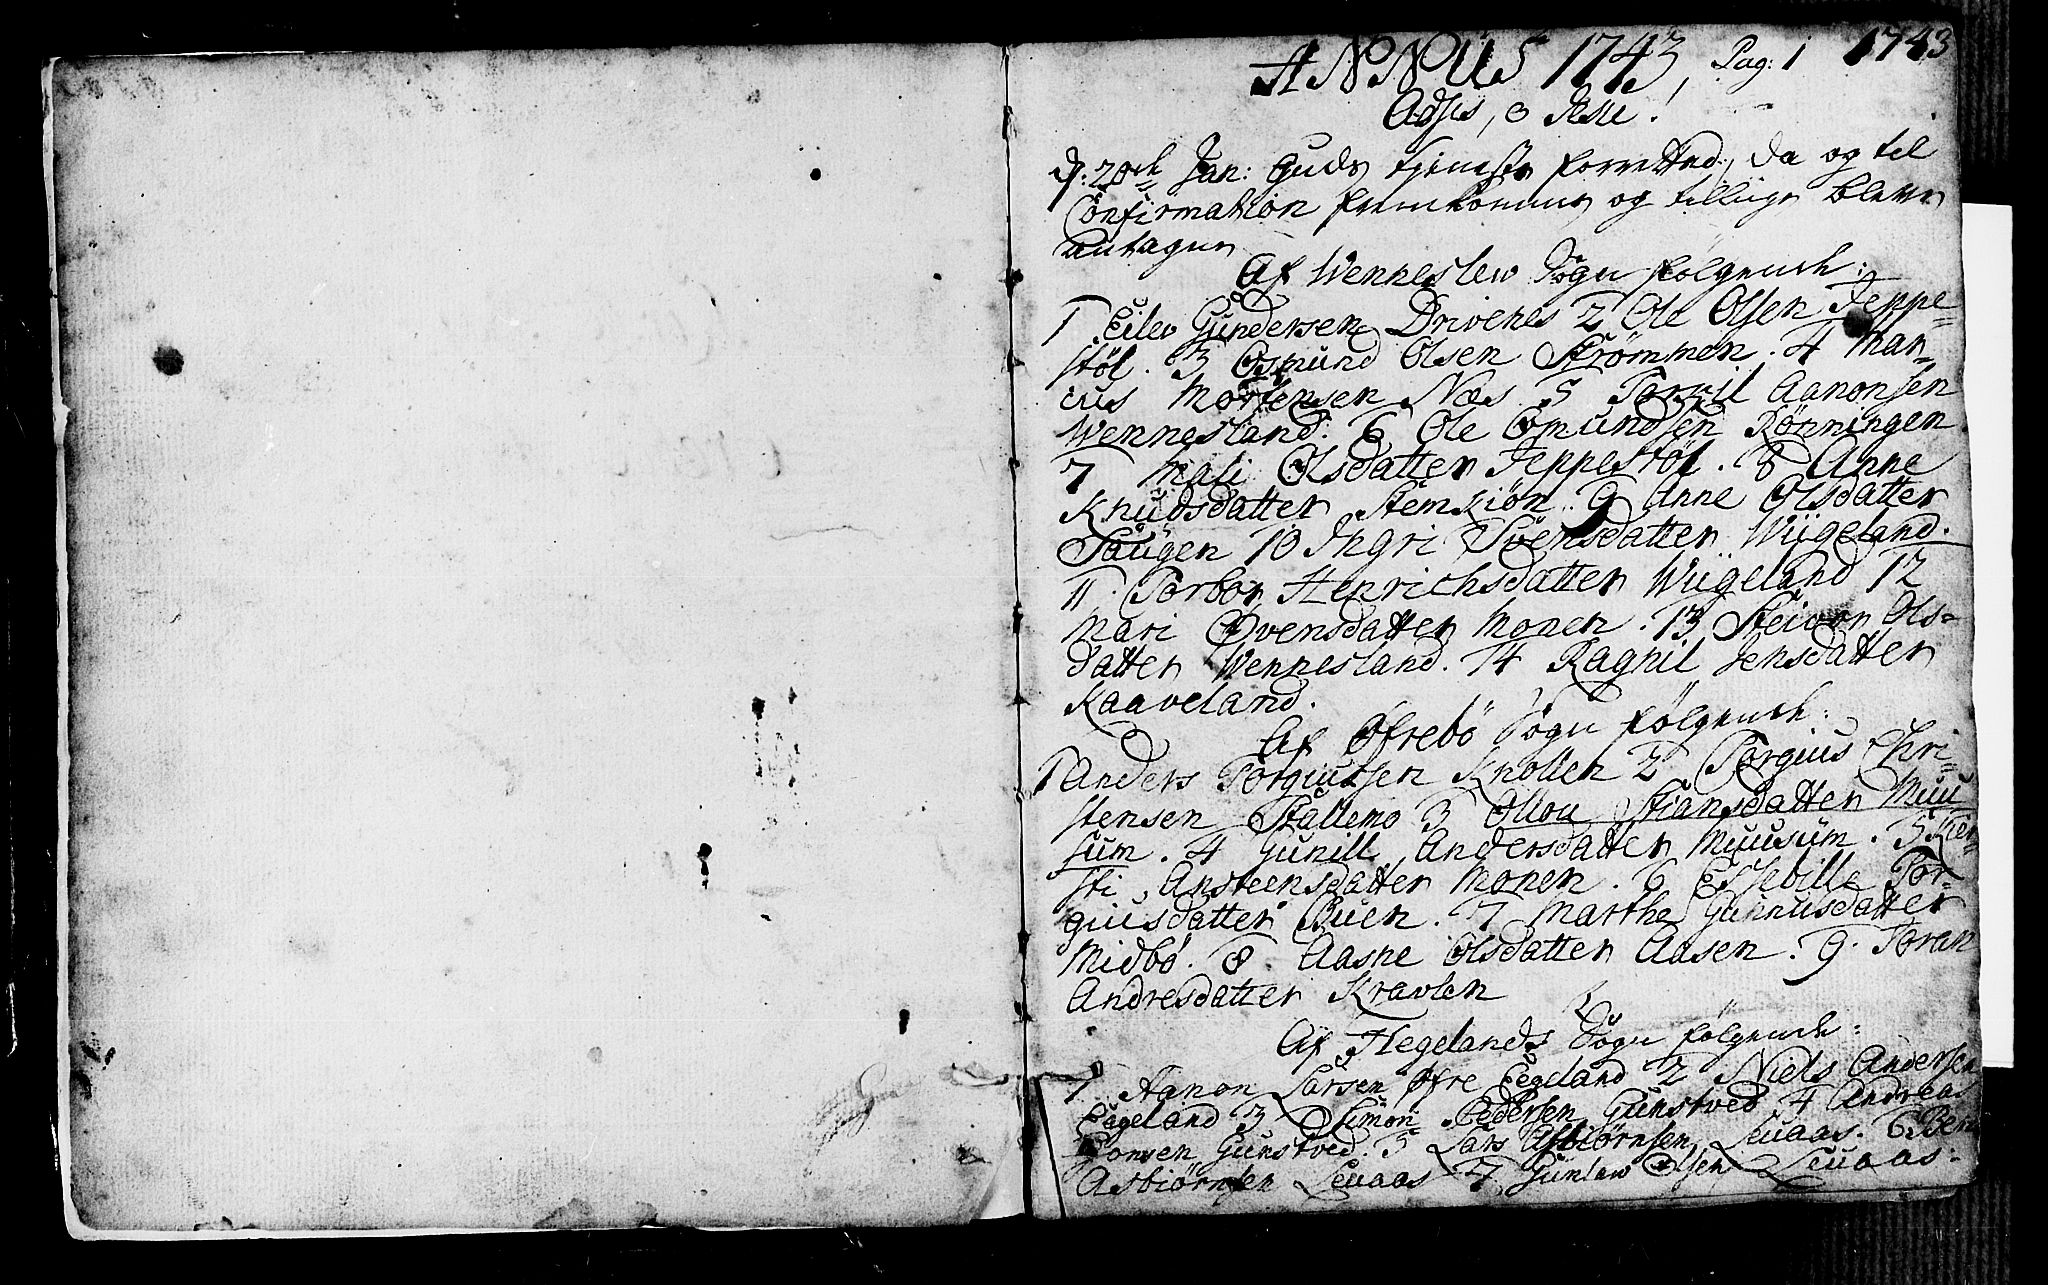 ANNUS 1743, Pag: 1 1743
Adsis, o Jesu!
d. 20de Jan: Guds tjeneste forretted, da og til
Confirmation fremkomne og tillige bleve
antagne
Af Wenneslew Sogn følgende:
1 Eilev Gundersen Drivenes 2 Ole Olsen Jeppe-
støl. 3 Osmund Olsen Strømmen. 4 Mar-
cus Mortensen Næs 5 Torkil Aanonsen
Wennesland. 6 Ole Omundsen Rönningen
7 Mali Olsdatter Jeppestøl. 8 Anne
Knudsdatter Stemkiøn. 9 Anne Olsdatter
Haugen 10 Ingri Svensdatter Wiigeland.
11. Torbor Henrichsdatter Wiigeland 12
Mari Øvensdatter Monen. 13 Steivor Ols-
datter Wennesland. 14 Ragnil Jensdatter
Kaaveland.
Af Øfrebö Sogn følgende:
1 Anders Torgiusen Knollen 2 Torgius Chri-
stensen Stallemo 3 Ollou Stiansdatter Muu
sum. 4 Gunill Andersdatter Muusum. 5 Kier-
sti Ansteensdatter Monen. 6 Tor-
giusdatter Buen. 7 Marthe Gunnusdatter
Midbö. 8. Aasne Olsdatter Aasen. 9. Toran
Andresdatter Kravlen
Af Hegelands Sogn følgende:
1 Aanon Larsen Øfre Eegeland 2 Niels Andersen
Eegeland 3 Simon Pedersen Gunstved 4 Andreas
Tonsen Gunstved. 5 Lars Asbiörnsen Leuaas. 6 Bent
Asbiörnsen Leuaas 7 Gunlew Olsen Leuaas: